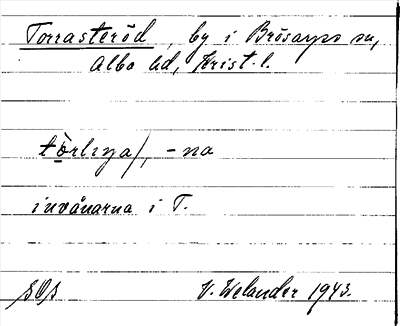 Torrasteröd, by i Brösarps sn,
Albo hd, Krist. l.
tö̀rlıŋa/, -na
invånarna i T.
SOS V. Welander 1943.